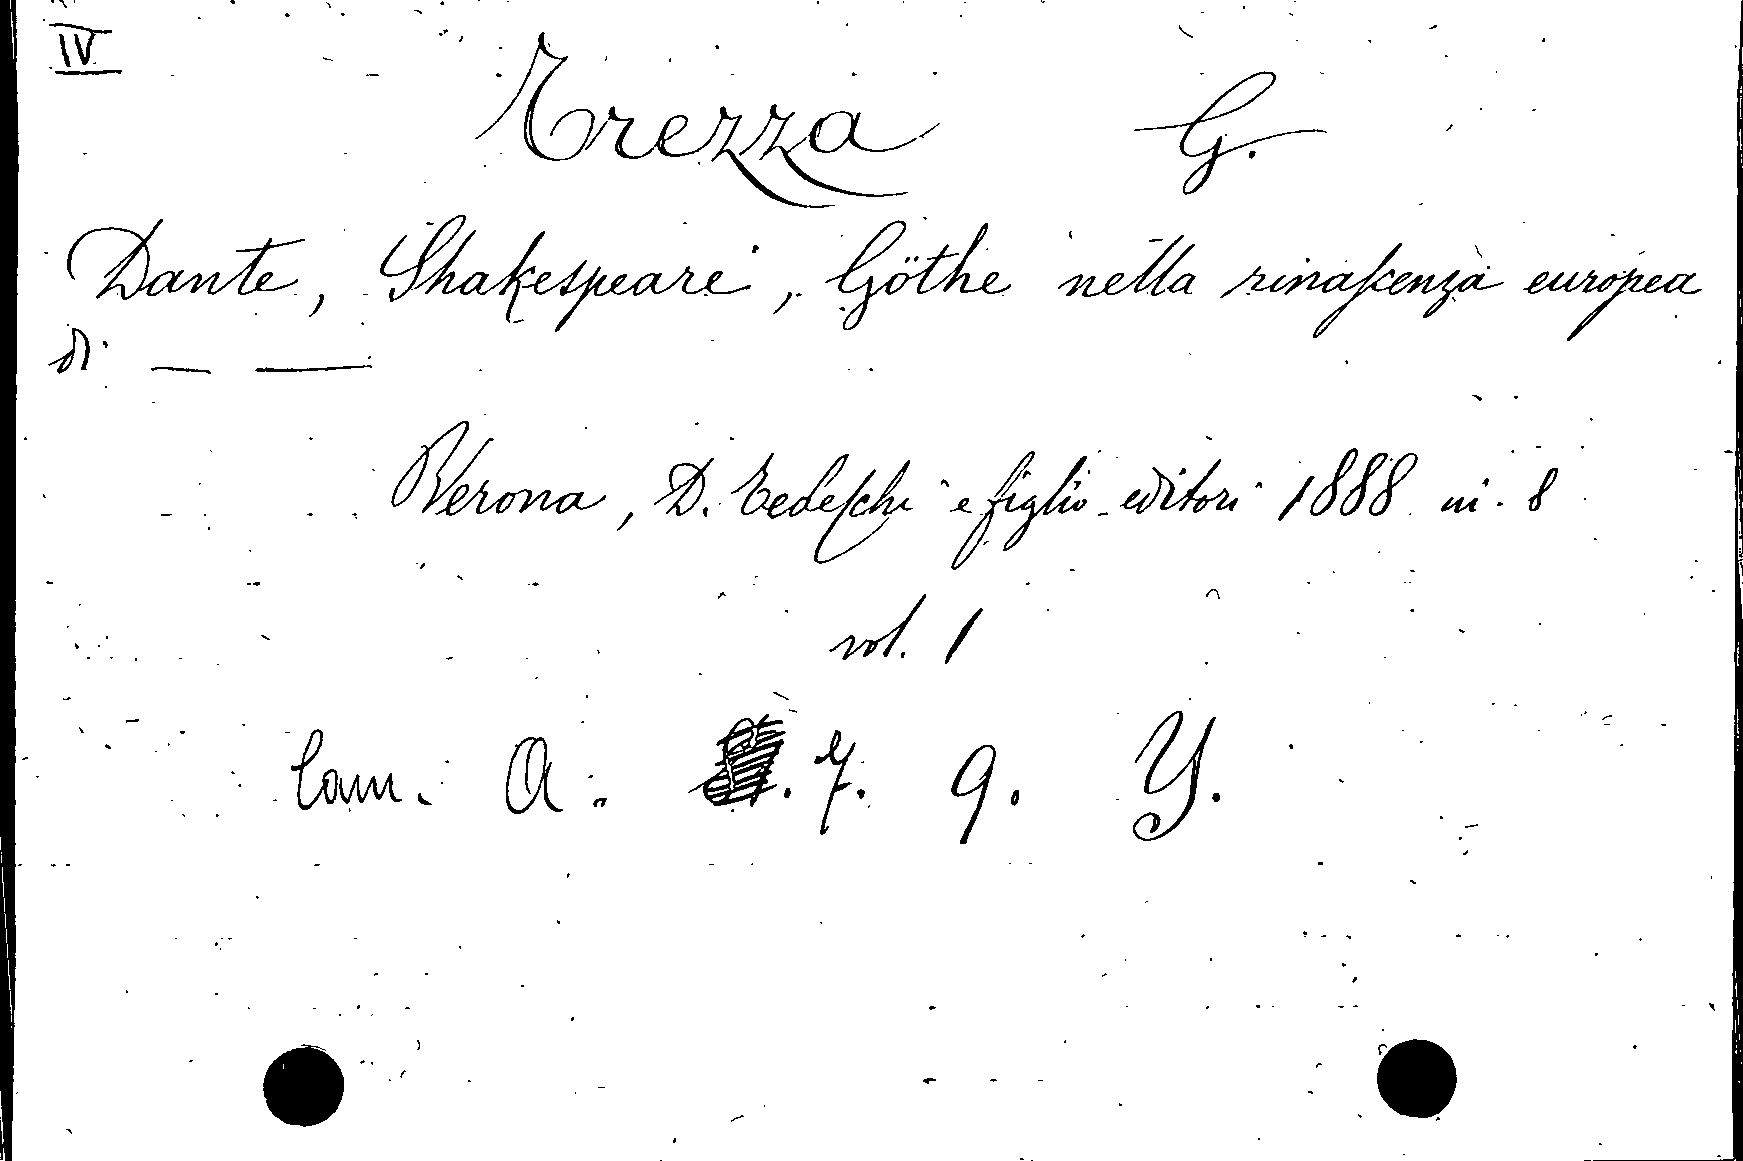 IV
Trezza G.
Dante, Shakespeare, Göthe nella rinascenza europea
di — —
Verona, D. Tedeschi e figlio editori 1888 in. 8
vol. 1
Cam. A. 7. 9. Y.